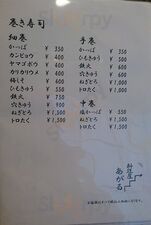 巻き寿司
細巻
かっぱ ¥ 350
カンピョウ ¥ 400
ヤマゴボウ ¥ 400
カリカリウメ ¥ 400
梅しそ ¥ 600
ひもきゅう ¥ 550
鉄火 ¥ 750
穴きゅう ¥ 900
ねぎとろ ¥ 1,500
トロたく ¥ 1,500
手巻
かっぱ ¥ 350
ひもきゅう ¥ 500
鉄火 ¥ 600
穴きゅう ¥ 600
ねぎとろ ¥ 1,000
トロたく ¥ 1,000
中巻
塩かっぱ ¥ 550
ねぎとろ ¥ 1,800
トロたく ¥ 1,800
料理屋
あがる